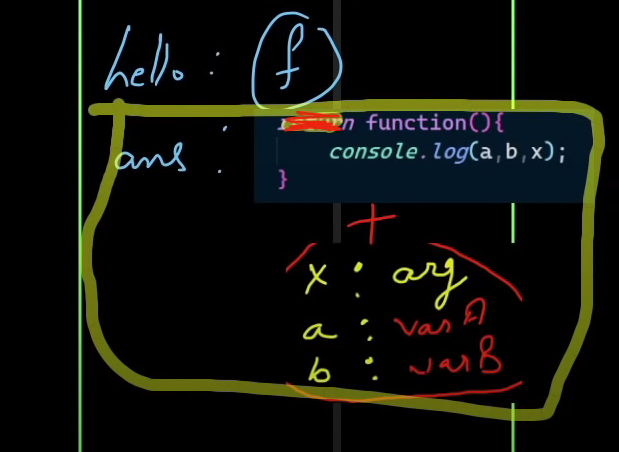 hello : f
ans : function(){
console.log(a,b,x);
}
+
x : arg
a : varA
b : varB